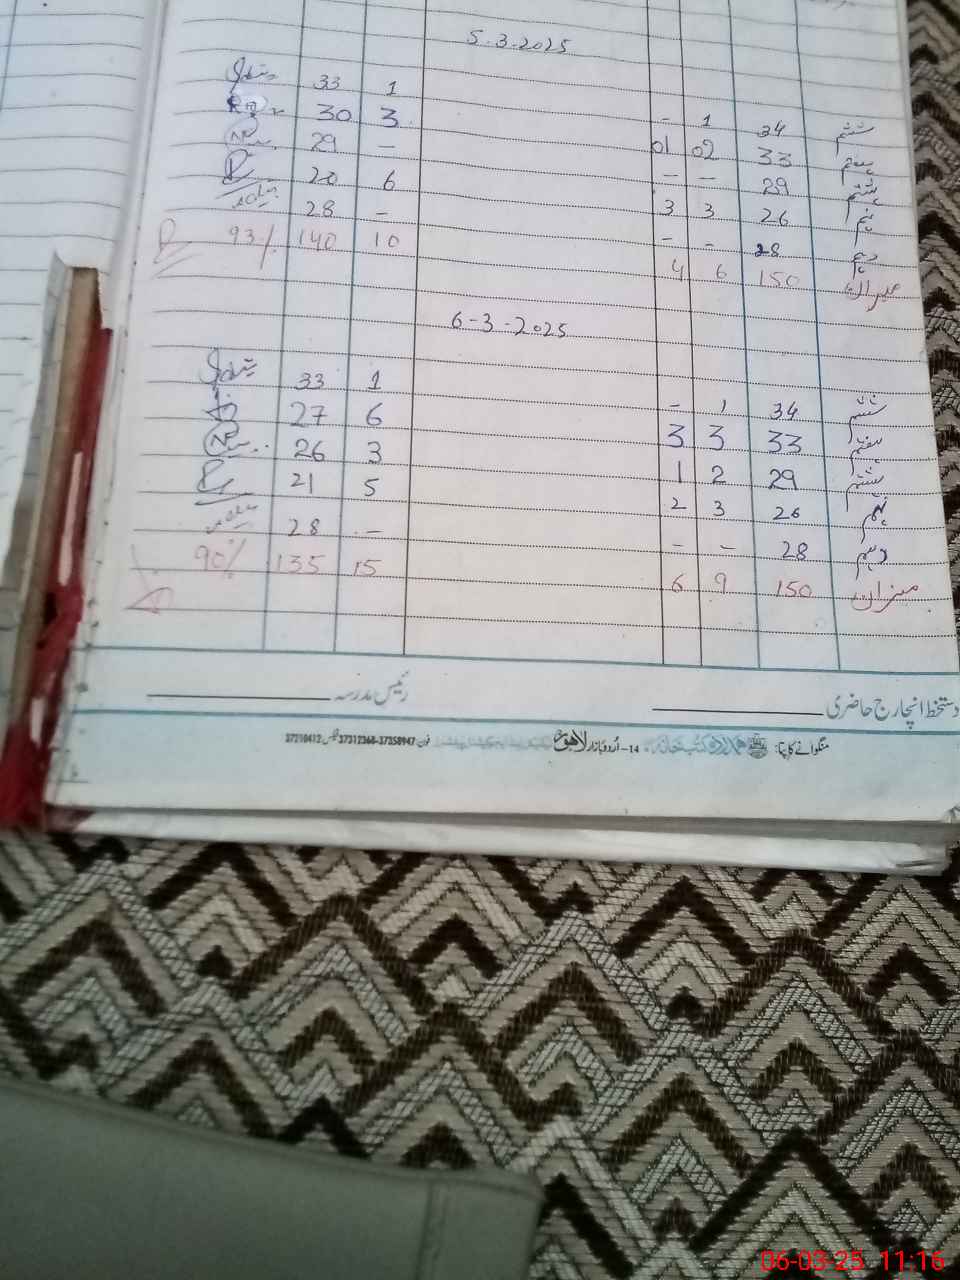 5.3.2025
ششم 34 1 - 1 33
ہفتم 33 02 01 3 30
ہشتم 29 - - - 29
نہم 26 3 3 6 20
دہم 28 - - - 28
میزان 150 6 4 10 140 93%
6-3-2025
ششم 34 1 - 1 33
ہفتم 33 3 3 6 27
ہشتم 29 2 1 3 26
نہم 26 3 2 5 21
دہم 28 - - - 28
میزان 150 9 6 15 135 90%
دستخط انچارج حاضری رئیس مدرسہ
منگوانے کا پتا: ہمدرد کتب خانہ 14-اُردو بازار لاہور فون 37358947-37312368 فیکس 37210412
06-03-25 11:16